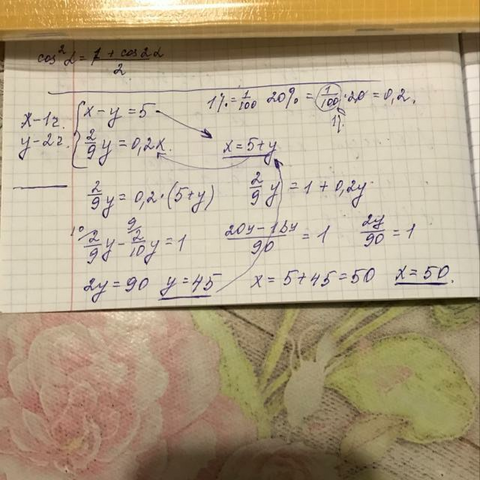 cos²α = 1 + cos2α / 2
1% = 1/100 20% = 1/100 · 20 = 0,2.
1%
x – 1ч. { x – y = 5
y – 2ч. { 2/9 y = 0,2x. x = 5 + y
2/9 y = 0,2 · (5 + y) 2/9 y = 1 + 0,2y
10/ 2/9 y – 9/ 2/10 y = 1 20y – 18y / 90 = 1 2y/90 = 1
2y = 90 y = 45 x = 5 + 45 = 50 x = 50.